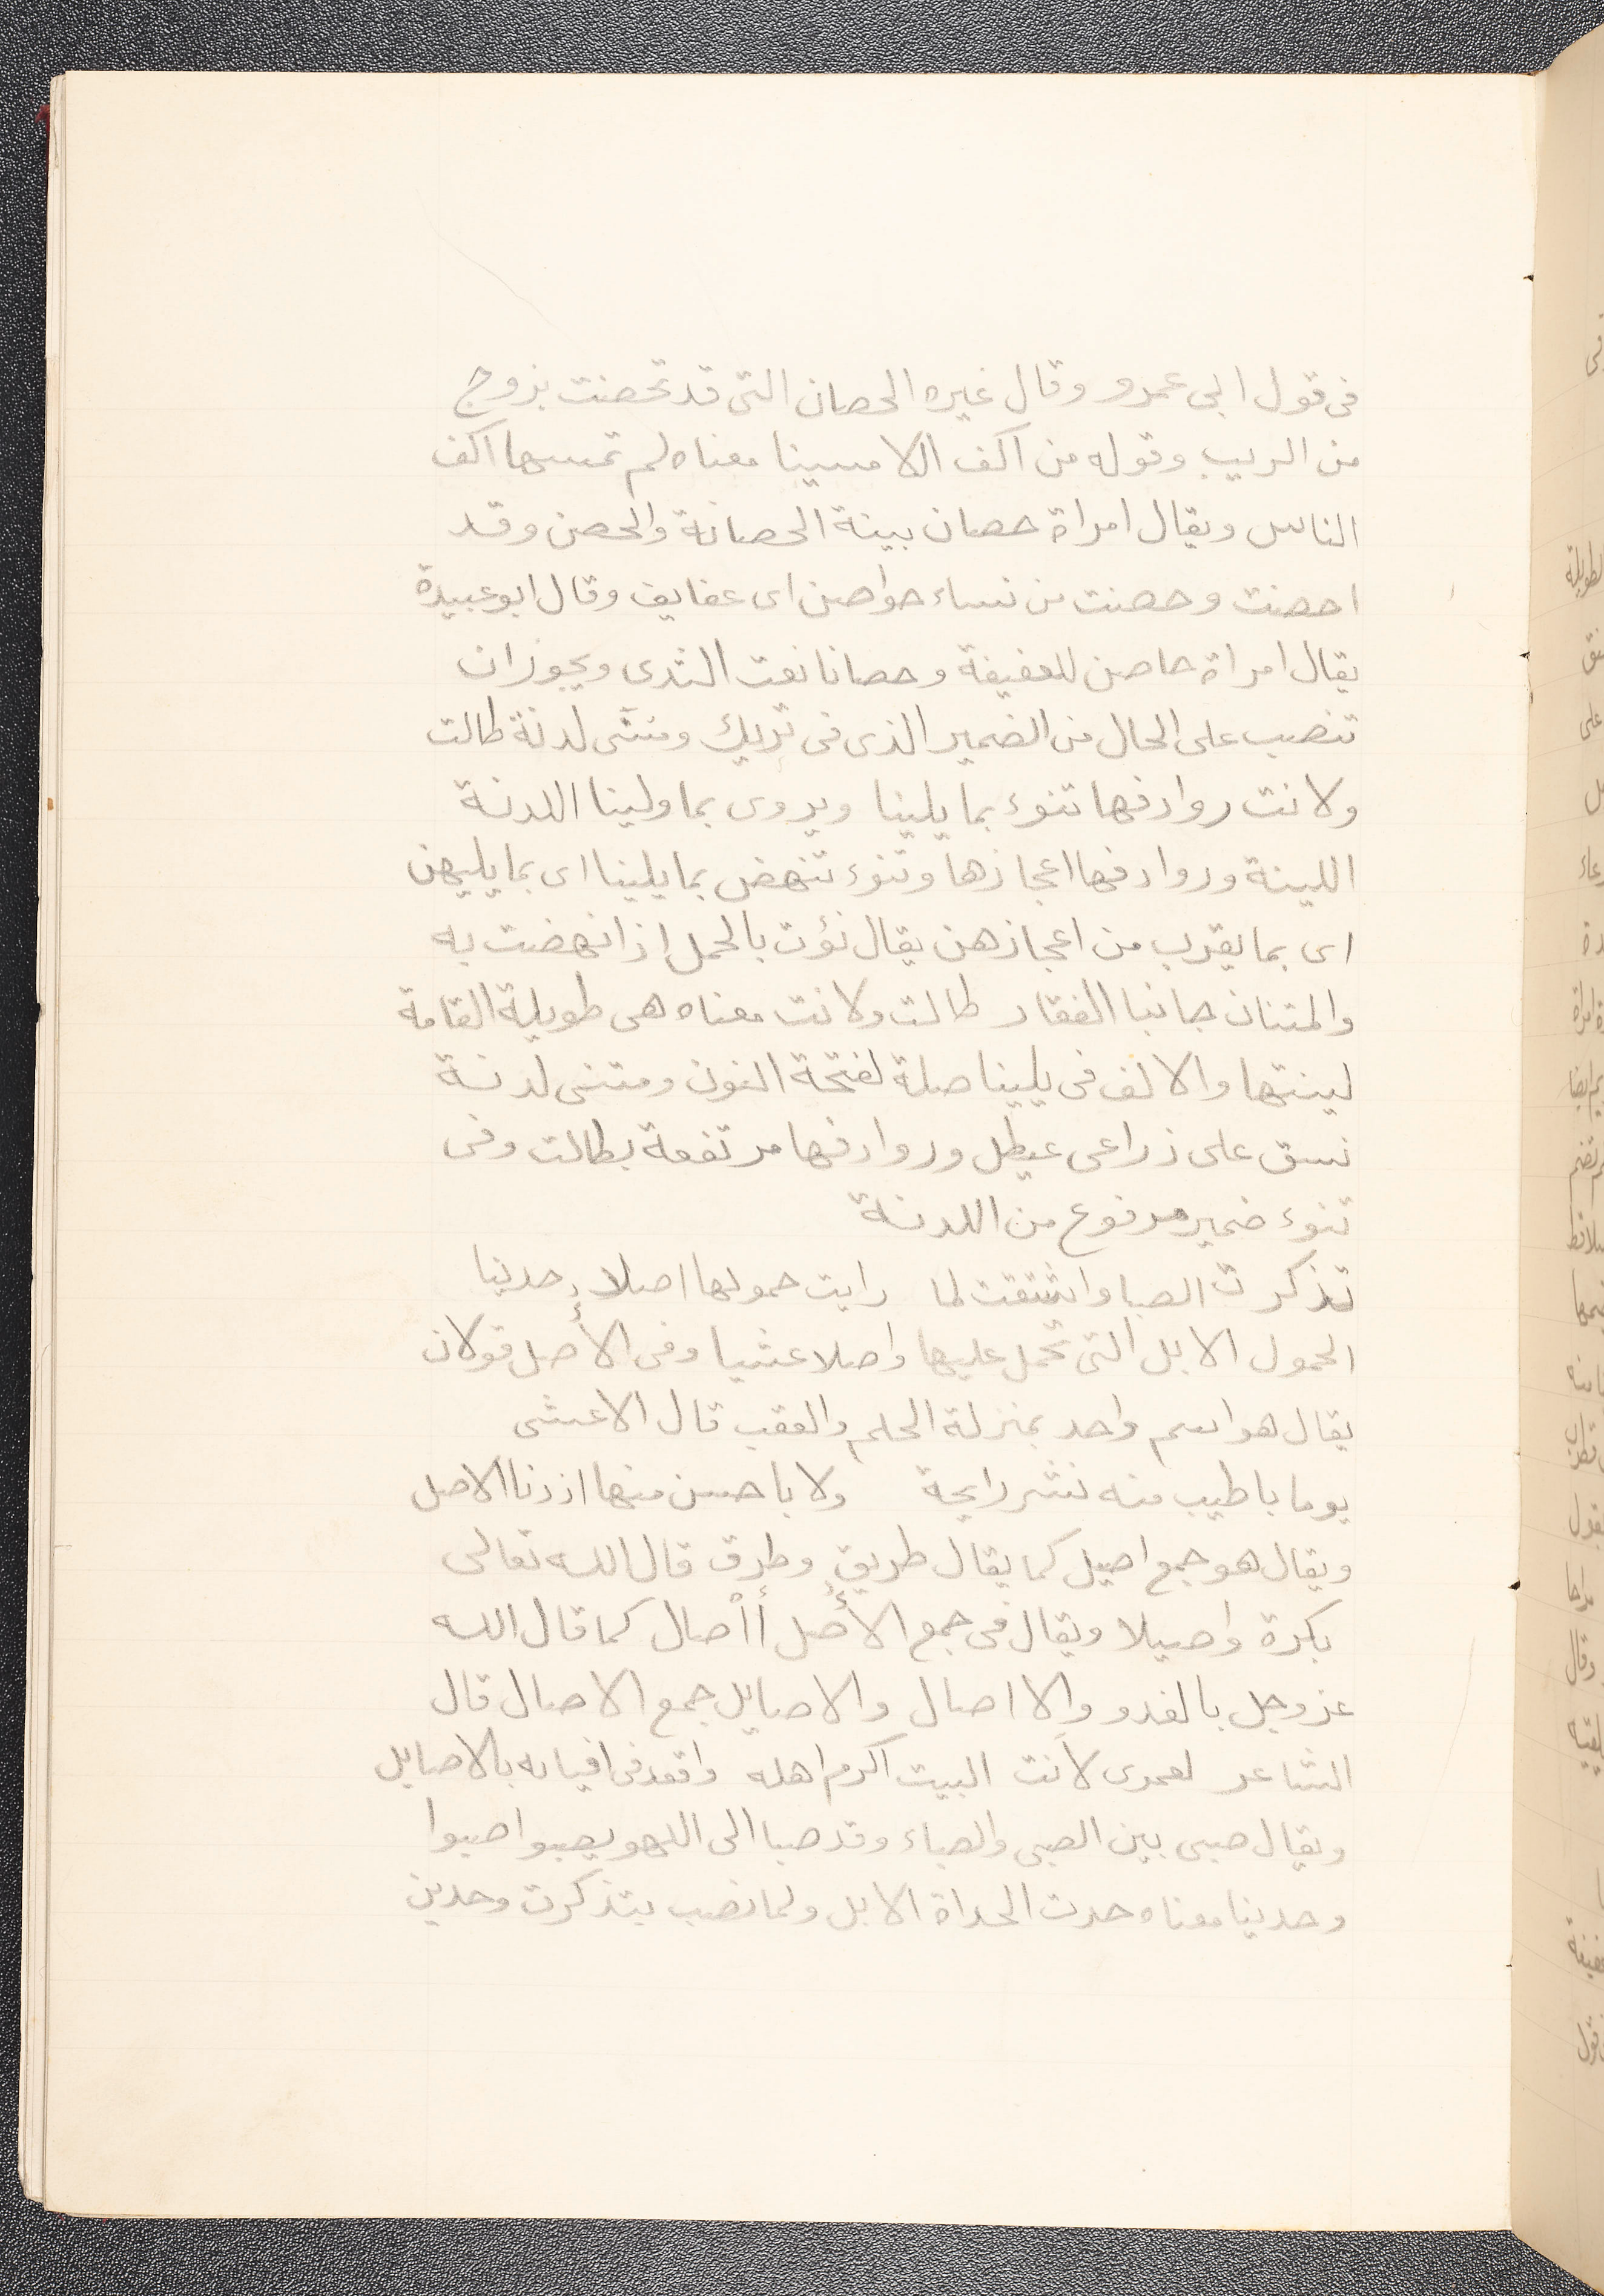 فى قول ابى عمرو وقال غيره الحصان التى قد تحصنت بزوج
من الريب وقوله من اكف اللامسينا معناه لم تمسها اكف
الناس ويقال امراة حصان بينة الحصانة والحصن وقد
احصنت وحصنت من نساء حواصن اى عفايف وقال ابو عبيدة
يقال امراة حاصن للعفيفة وحصانا نعت الثدى ويجوز ان
تنصب على الحال من الضمير الذى فى تريك ومتنى لدنة طالت
ولانت روادفها تنوء بما يلينا ويروى بما ولينا اللدنة
اللينة وروادفها اعجازها وتنوء تنهض بما يلينا اى بما يليهن
اى بما يقرب من اعجازهن يقال نؤت بالحمل اذا نهضت به
والمتنان جانبا الفقار طالت ولانت معناه هى طويلة القامة
لينتها والالف فى يلينا صلة لفتحة النون ومتنى لدنة
نسق على ذراعى عيطل وروادفها مرتفعة بطالت وفى
تنوء ضمير مرفوع من اللدنة
تذكرت الصبا واشتقت لما رايت حمولها اصلاء حدينا
الحمول الابل التى تحمل عليها واصلا عشيا وفى الأصل قولان
يقال هو اسم واحد بمنزلة الحلم والعقب قال الاعشى
يوما باطيب منه نشر رايحة ولا باحسن منها اذ دنا الاصل
ويقال هو جمع اصيل كما يقال طريق وطرق قال الله تعالى
بكرة واصيلا ويقال فى جمع الأصل أاصال كما قال الله
عز وجل بالغدو والااصال والاصايل جمع الاصال قال
الشاعر لعمرى لأنت البيت اكرم اهله واقعد فى افيايه بالاصايل
ويقال صبى بين الصبى والصباء وقد صبا الى اللهو يصبوا صبوا
وحدينا معناه حدت الحداة الابل ولما نصب بتذكرت وحدين